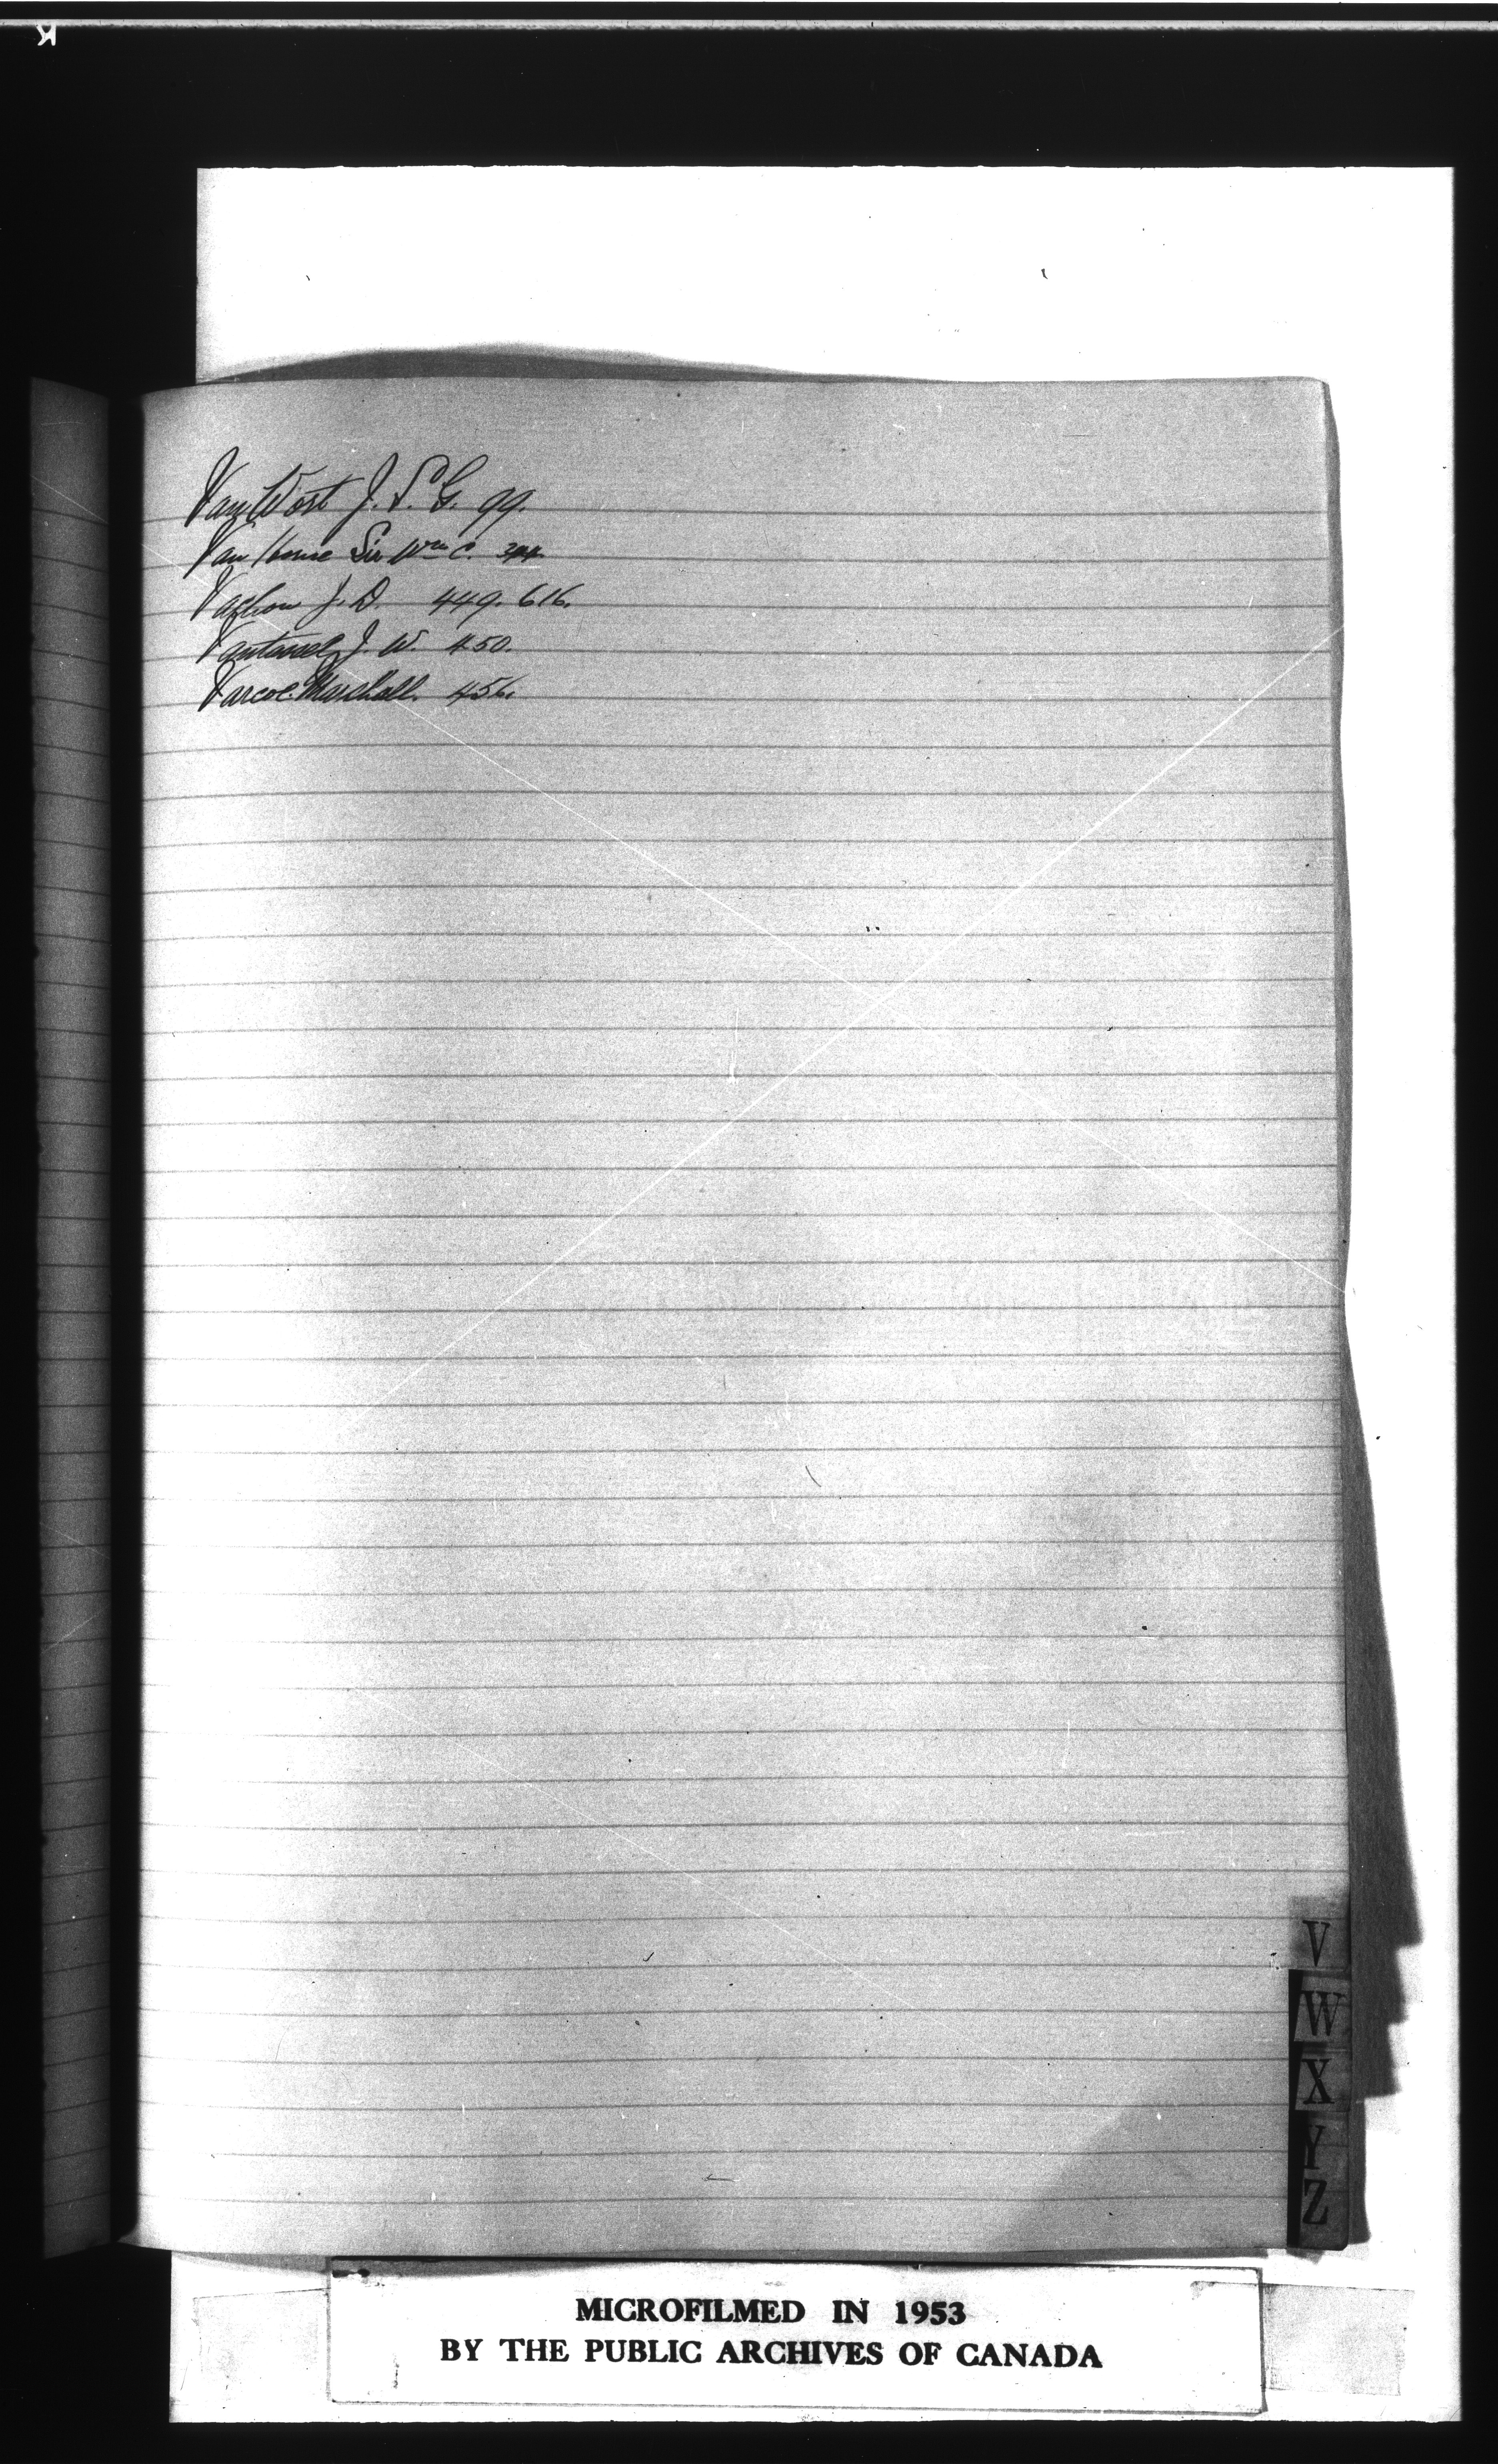 Van Wort J. S. G. 99.
Van Horne Sir Wm C. 344.
Vachon J. D. 449. 616.
Vantassel J. W. 450.
Varcoe. Marchall. 456.
V
W
X
Y
Z
MICROFILMED IN 1953
BY THE PUBLIC ARCHIVES OF CANADA